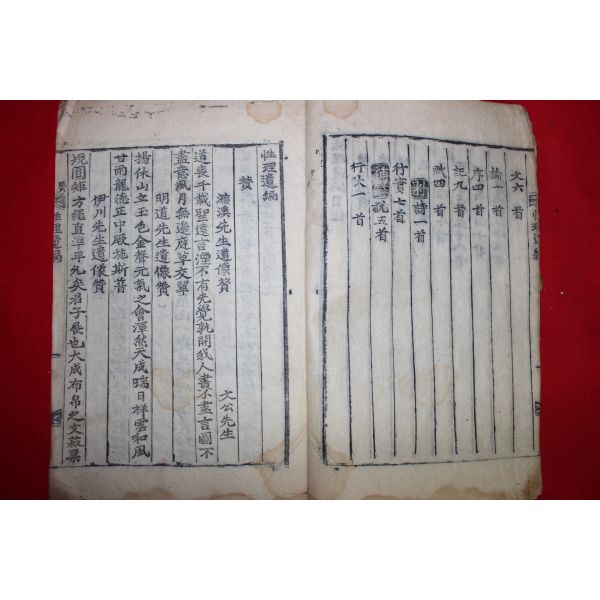 文六首
論一首
序四首
記九首
賦四首
詩一首
行實七首
說五首
行狀一首
性理遺編
性理遺編
贊
濂溪先生遺像贊
文公先生
道喪千載聖遠言湮不有先覺孰開我人書不盡言圖不
盡意風月無邊庭草交翠
明道先生遺像贊
揚休山立玉色金聲元氣之會渾然天成瑞日祥雲和風
甘雨龍德正中厥施斯普
伊川先生遺像贊
規圓矩方繩直準平允矣君子展也大成布帛之文菽粟
性理遺編